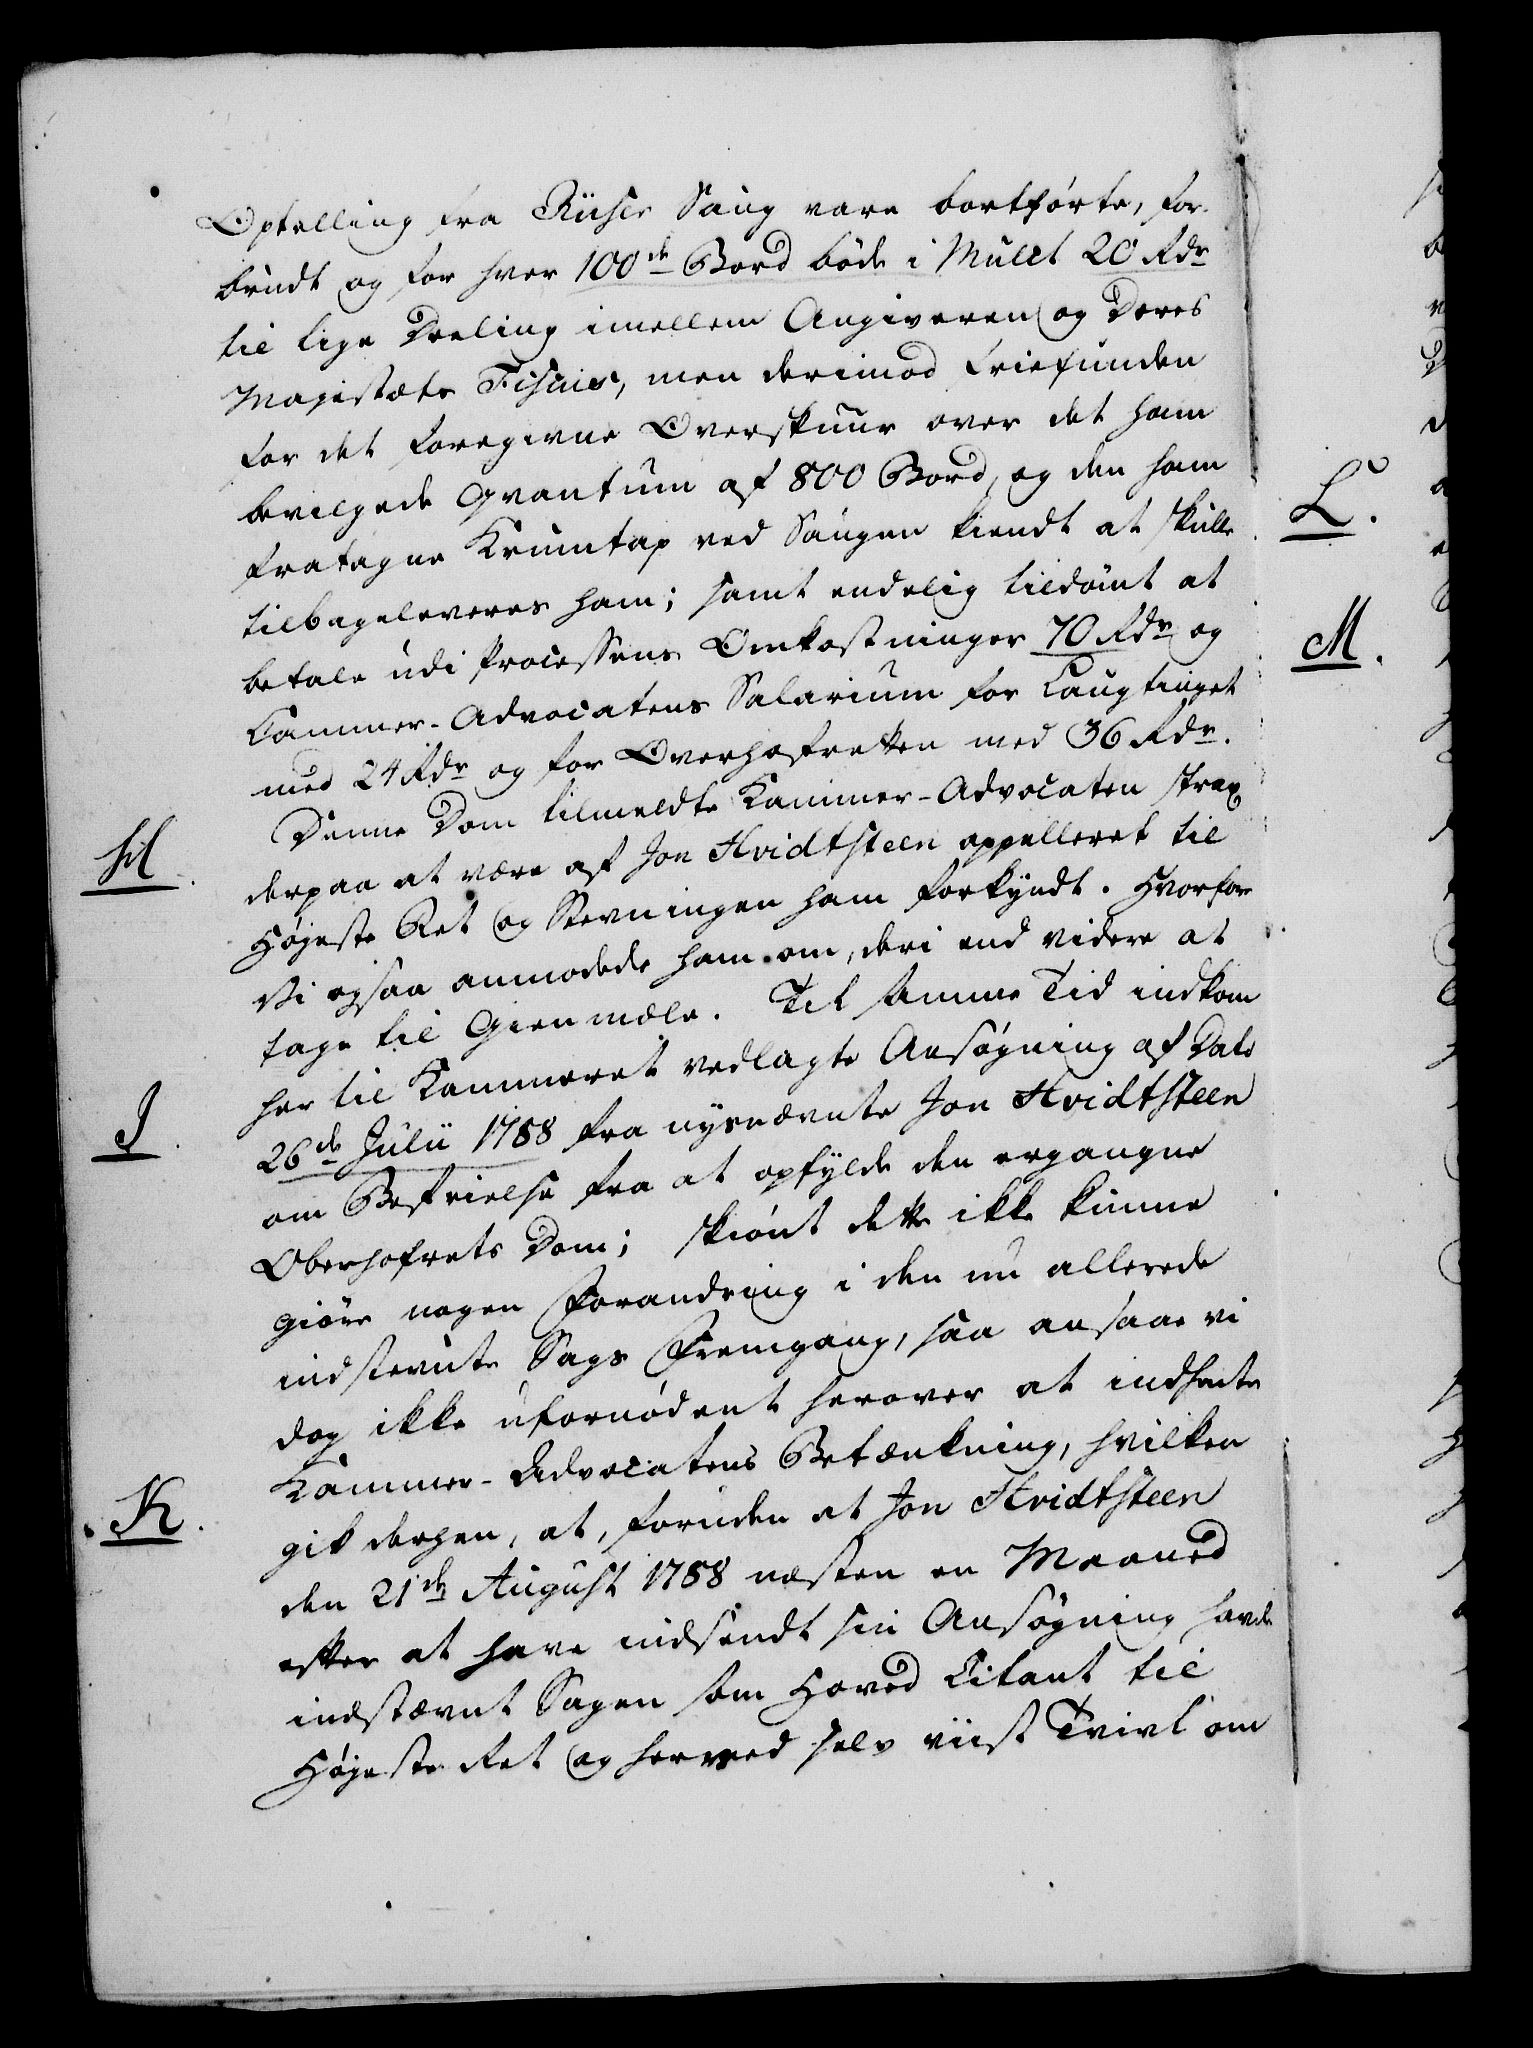 Optelling fra Riiser Saug vare bortførte, for-
brudt og for hver 100de Bord bøde i Mulct 20 Rdr
til lige Deeling imellem Angiveren og Deres
Majestæts Fiscus, men derimod friefunden
for det foregivne Overskuur over det ham
bevilgede Qvantum af 800 Bord, og den ham
fratagne Krumtap ved Saugen kiendt at skulle
tilbageleveres ham; samt endelig tildømt at
betale udi Processens Omkostninger 70 Rdr og
Kammer-Advocatens Salarium for Laugtinget
med 24 Rdr og for Overhofretten med 36 Rdr.
H.
Denne Dom tilmeldte Kammer-Advocaten strax
derpaa at være af Jon Hvidtsteen appelleret til
Højeste Ret og Stevningen ham forkyndt. Hvorfor
Vi ogsaa anmodede ham om, deri end videre at
tage til Gienmæle. Til samme Tid indkom
her til Kammeret vedlagte Ansøgning af Dato
I.
26de Julii 1788 fra nysnævnte Jon Hvidtsteen
om Befrielse fra at opfylde den ergangne
Oberhofrets Dom; skiønt dette ikke kunne
giøre nogen Forandring i den nu allerede
indstevnte Sags Fremgang, saa ansaae vi
dog ikke ufornødent herover at indhente
K.
Kammer-Advocatens Betænkning, hvilken
gik derhen, at, foruden at Jon Hvidtsteen
den 21de August 1788 næsten en Maaned
efter at have indsendt sin Ansøgning havde
indstævnt Sagen som Hoved Citant til
Højeste Ret og herved selv viist Tvivl om
L.
M.